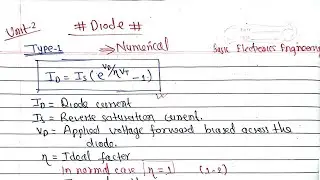 Unit-2
# Diode #
Type-1 → Numerical
Basic Electronics Engineering
I_D = I_S (e^{V_D/ηV_T} - 1)
I_D = Diode current
I_S = Reverse saturation current.
V_D = Applied voltage forward biased across the
diode.
η = Ideal factor
In normal case η = 1 (1-2)